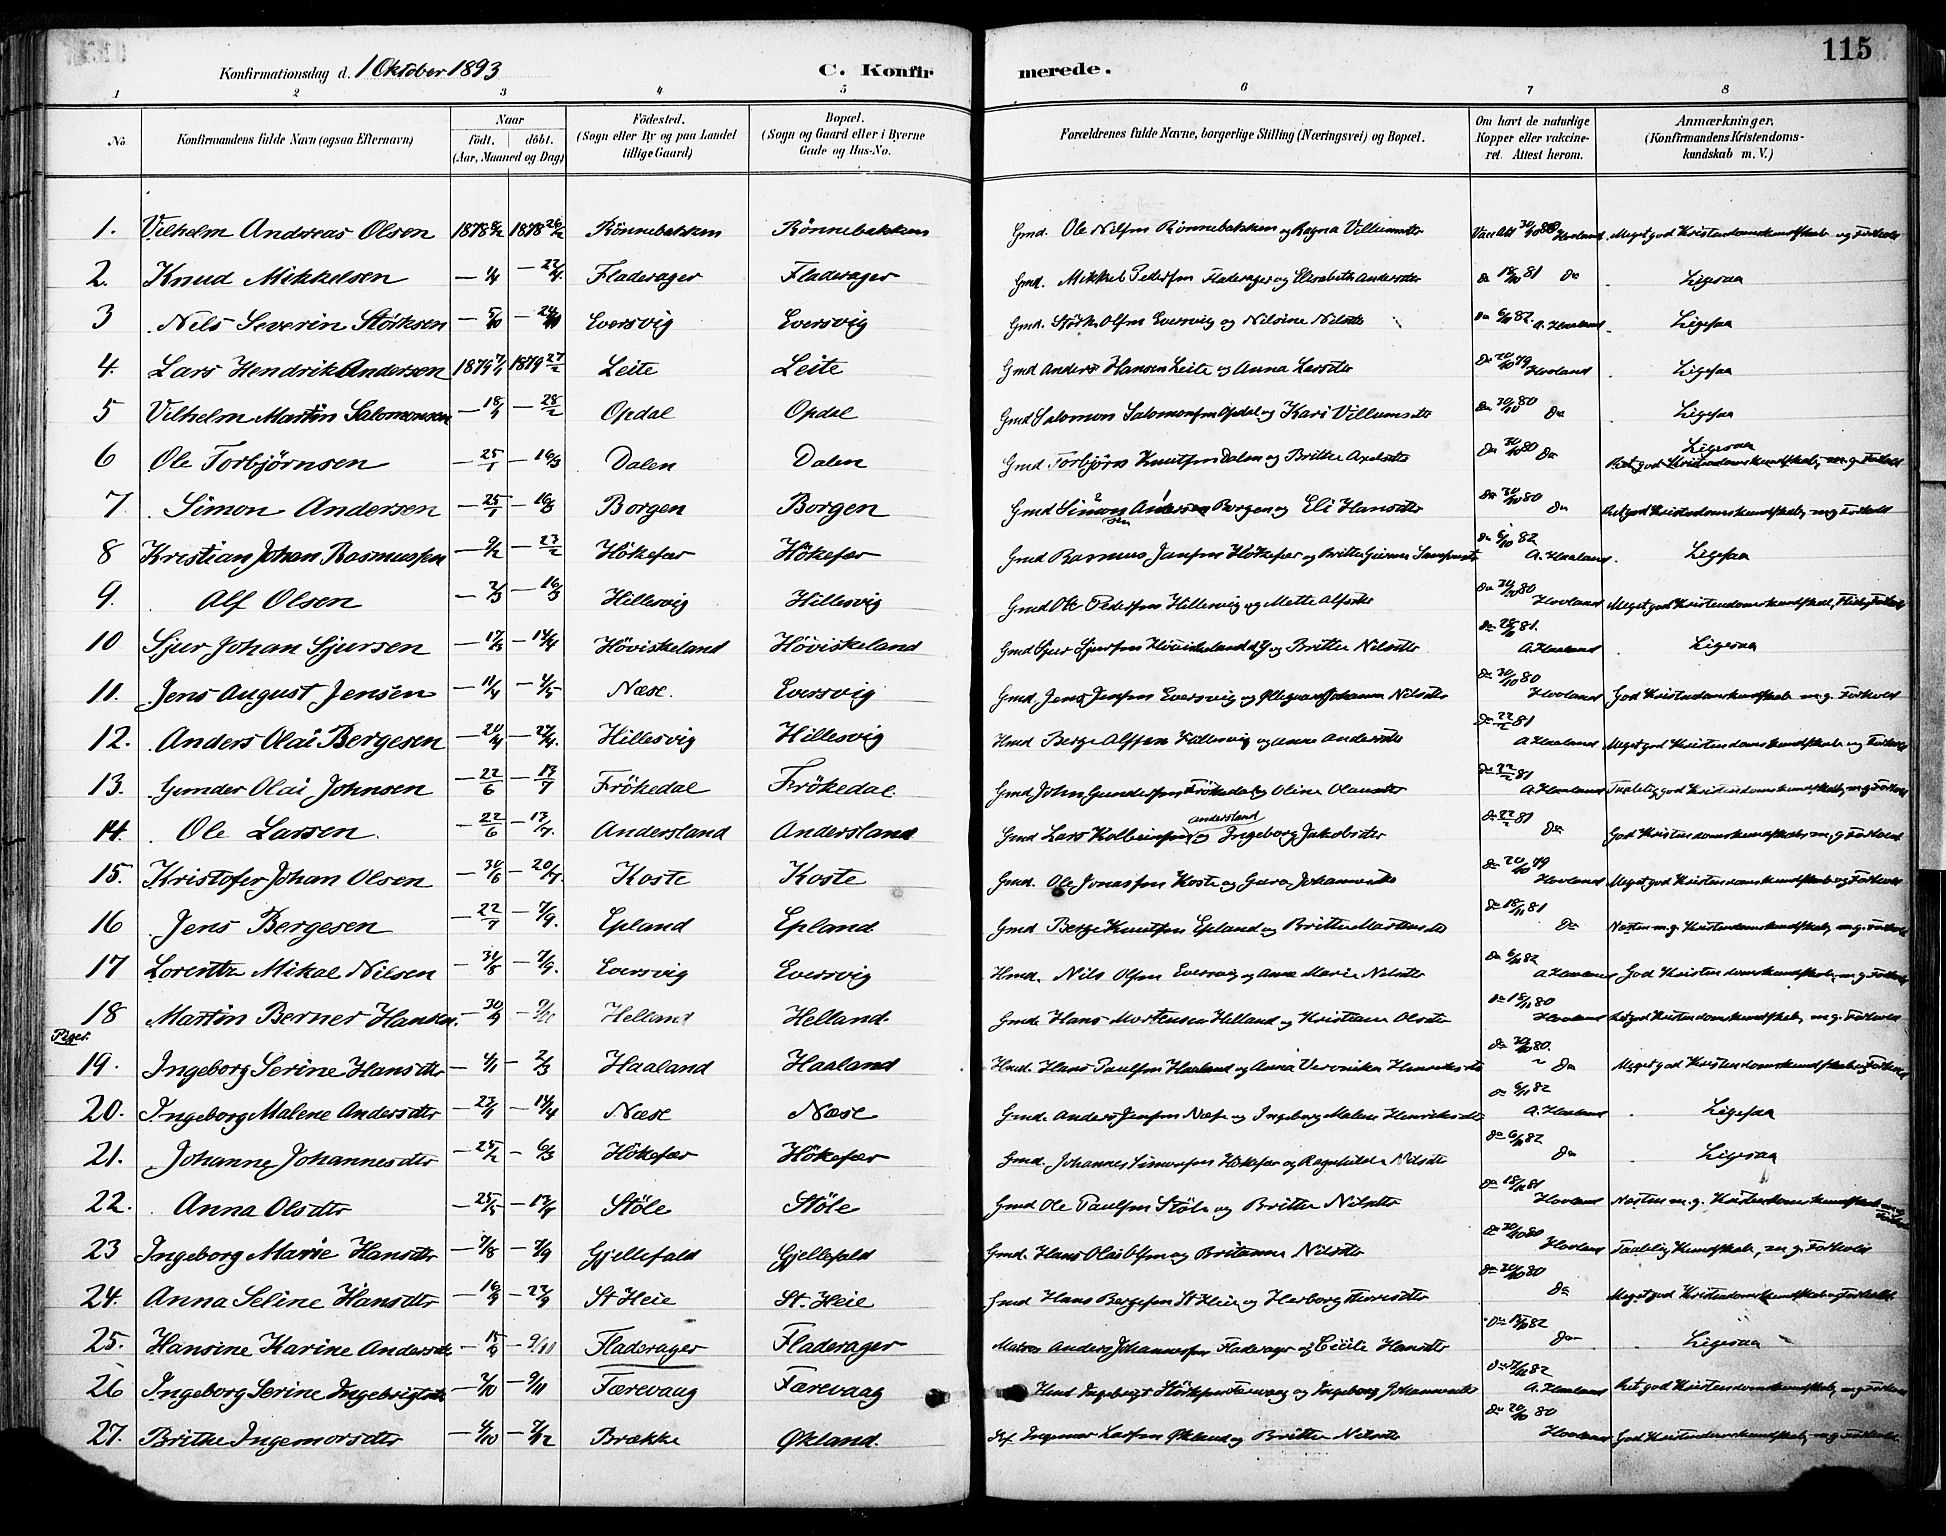 115
Konfirmationsdag d. 1 Oktober 1893
C. Konfirmerede.
1 2 3 4 5 6 7 8
No. Konfirmandens fulde Navn (ogsaa Efternavn) Naar født. døbt. (Aar, Maaned og Dag) Fødested. (Sogn eller By og paa Landet tillige Gaard) Bopæl. (Sogn og Gaard eller i Byerne Gade og Hus-No. Forældrenes fulde Navne, borgerlige Stilling (Næringsvei) og Bopæl. Om havt de naturlige Kopper eller vakcineret. Attest herom. Anmærkninger, (Konfirmandens Kristendomskundskab m. V.)
1. Vilhelm Andreas Olsen 1878 1878 26/2 Rönnebakken Rönnebakken Gmd. Ole Nilsen Rönnebakken og Ragna Villumsdtr Hovland Meget god Kristendomskundskab og Forhold
2. Knud Mikkelsen — 1/4 — 22/4 Fladerager Fladerager Gmd. Mikkel Pedersen Fladerager og Elisabeth Andersdtr do 18/10 81 do Ligesaa
3 Nils Severin Störksen — 5/10 — Eversvig Eversvig Gmd. Störk Olsen Eversvig og Nilsine Nilsdtr do 82 A. Haaland Ligesaa
4. Lars Hendrik Andersen 1879 1879 27/2 Leite Leite Gmd Anders Hansen Leite og Anna Larsdtr do 20/10 79 Hovland Ligesaa
5 Vilhelm Martin Salomonsen — — 28/2 Opdal Opdal Gmd Salomon Salomonsen Opdal og Kari Villumsdtr do 30/10 80 do Ligesaa
6 Ole Torbjörnsen — 25/1 — 16/3 Dalen Dalen Gmd Torbjörn Knutsen Dalen og Britha Axelsdtr do 30/10 80 do Ligesaa
Ret god Kristendomskundskab, m. g. Forhold
7 Simon Andersen — 25/1 — 16/3 Borgen Borgen Gmd Simon Andersen Borgen og Eli Hansdtr do 30/10 80 do Ret god Kristendomskundskab, m. g. Forhold
8 Kristian Johan Rasmussen — 9/2 — 23/2 Hökefær Hökefær Gmd Rasmus Jansen Hökefær og Britha do 82 A. Haaland Ligesaa
9. Alf Olsen — 2/3 — 16/3 Hillesvig Hillesvig Gmd Ole Pedersen Hillesvig og Mette Alfsdtr do 30/10 80 Hovland Meget god Kristendomskundskab,
10 Sjur Johan Sjursen — 17/3 — 14/4 Höviskeland Höviskeland Gmd Sjur Sjursen Höviskeland og Britha Nilsdtr do 81. A. Haaland Ligesaa
11. Jens August Jensen — 11/4 — 4/5 Næse. Eversvig Gmd. Jens Jensen Eversvig og Johanna Nilsdtr do 30/10 80 Hovland God Kristendomskundskab m. g. Forhold
12. Anders Olai Bergesen — 20/4 — 27/4. Hillesvig Hillesvig Hmd Berge Alfsen Hillesvig og Anna Andersdtr do 22/2 81 A Haaland Meget god Kristendomskundskab og Forhold
13. Gunder Olai Johnsen — 22/6 — 13/7 Frökedal Frökedal Gmd John Gundersen Frökedal og Oline Olausdtr do 22/2 81 A. Haaland Taalelig god Kristendomskundskab, m. g. Forhold
14. Ole Larsen — 22/6 — 13/7. Andersland Andersland Gmd Lars Kolbeinsen Andersland og Ingeborg Jakobsdtr do 22/2 81 do God Kristendomskundskab, m. g. Forhold
15. Kristofer Johan Olsen — 30/6 — 20/7. Koste Koste Gmd. Ole Jonassen Koste og Gura Johannesdtr do 20/10 79 Hovland Meget god Kristendomskundskab og Forhold
16 Jens Bergesen — 22/7 — 7/9. Epland Epland Gmd Berge Knutsen Epland og Britha Mortensdtr do 18/11 81 do Næsten m. g. Kristendomskundskab, m. g. Forhold
17 Lorentz Mikal Nilsen — 31/8 — 7/9. Eversvig Eversvig Hmd. Nils Olsen Eversvig og Anna Marie Nilsdtr do 82 A Haaland God Kristendomskundskab, m. g. Forhold
18 Martin Berner Hansen. — 30/9 — Helland Helland. Gmd. Hans Mortensen Helland og Kristiane Olsdtr do 18/11 80 Hovland Ret god Kristendomskundskab, m. g. Forhold
Piger.
19. Ingeborg Serine Hansdtr — 4/1 — 2/3 Haaland Haaland Hmd. Hans Paulsen Haaland og Anna Veronika Henriksdtr do 30/10 80. do Meget god Kristendomskundskab og Forhold
20. Ingeborg Malene Andersdtr — 23/1 — 14/4 Næse Næse Gmd. Anders Jensen Næse og Ingeborg Malene Henriksdtr do 82 A. Haaland Ligesaa
21. Johanne Johannesdtr — 25/2 — 6/3 Hökefær Hökefær Gmd. Johannes Simonsen Hökefær og Ragnhilda Nilsdtr do 82 do Ligesaa
22. Anna Olsdtr — 25/5 — Stöle Stöle Gmd Ole Paulsen Stöle og Britha Nilsdtr do 18/11 81 Hovland Næsten m. g. Kristendomskundskab, m. g. Forhold
23 Ingeborg Marie Hansdtr — 7/8 — 7/9 Gjellefald Gjellefald Gmd. Hans Olai Olsen og Britanna Nilsdtr do 30/10 80 Hovland Taalelig Kundskab, m. g. Forhold
24. Anna Seline Hansdtr — 16/9 — 27/9 St Heie St. Heie Gmd Hans Bergesen St Heie og Herborg Thoresdtr do 30/10 80 do Meget god Kristendomskundskab og Forhold
25. Hansine Karine Andersdtr — 15/9 — 9/11 Fladerager Fladerager Matros Anders Johannessen Fladerager og Cecilie Hansdtr do 82 do Ligesaa
26 Ingeborg Serine Ingebrigtsdtr — 2/10 — 9/11 Færevaag Færevaag Hmd Ingebrigt Störksen Færevaag og Ingeborg Johannesdtr do 82 A. Haaland Ret god Kristendomskundskab, m. g. Forhold
27. Brithe Ingemorsdtr — 4/10 — 7/12 Brække Økland. Ingemor Larsen Økland og Britha Nilsdtr do 20/10 80 Hovland God Kristendomskundskab, m. g. Forhold